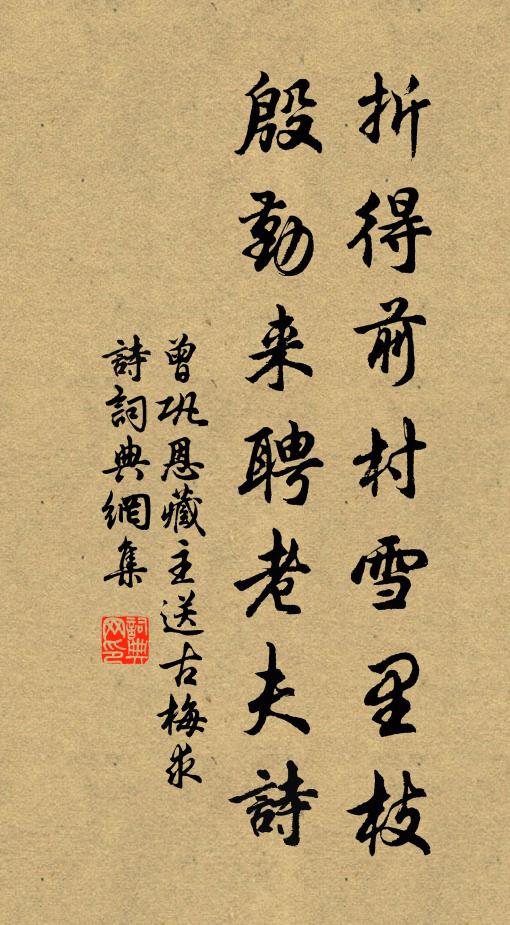 折得前村雪里枝
殷勤来聘老夫詩
曾巩恩藏主送古梅求
詩詞典網集
詞典
网印